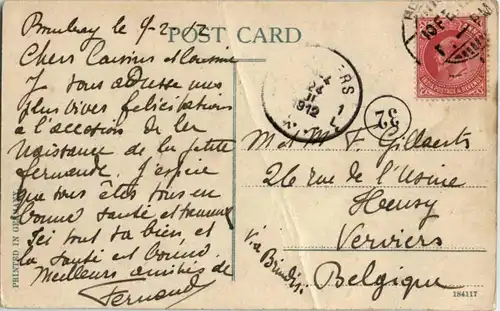 Bombay le 9-2-12
POST CARD
Chers Cousins et Cousine
J vous adresse mes
plus vives felicitations
à l'occasion de la
Naissance de la petite
Fernande. J'espère
que vous êtes tous en
bonne santé et
Ici tout va bien, et
la santé et bonne.
Meilleurs amitiés de
Fernand
PRINTED IN GERMANY
VERVIERS
24
II
1912
1
37
10 FE
INDIA POSTAGE & REVENUE
M et Mme F Gillaerts
26 rue de l'Usine
Heusy
Verviers
Belgique
Via Brindisi
184117